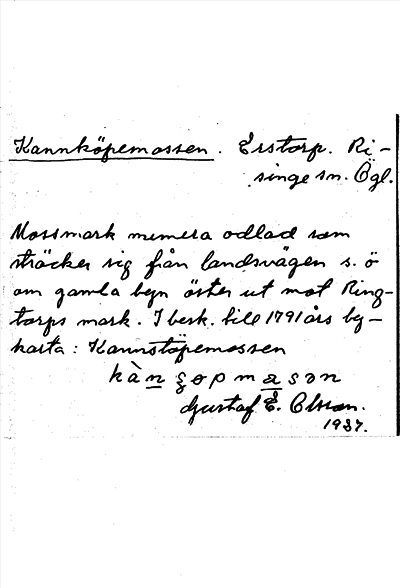 Kannköpemossen. Erstorp. Ri-
singe sn. Ögl.
Mossmark numera odlad som
sträcker sig från landsvägen s. ö
om gamla byn öster ut mot Ring-
torps mark. I besk. till 1791 års by-
karta: Kannstöpemossen
Gustaf E. Olsson.
1937.